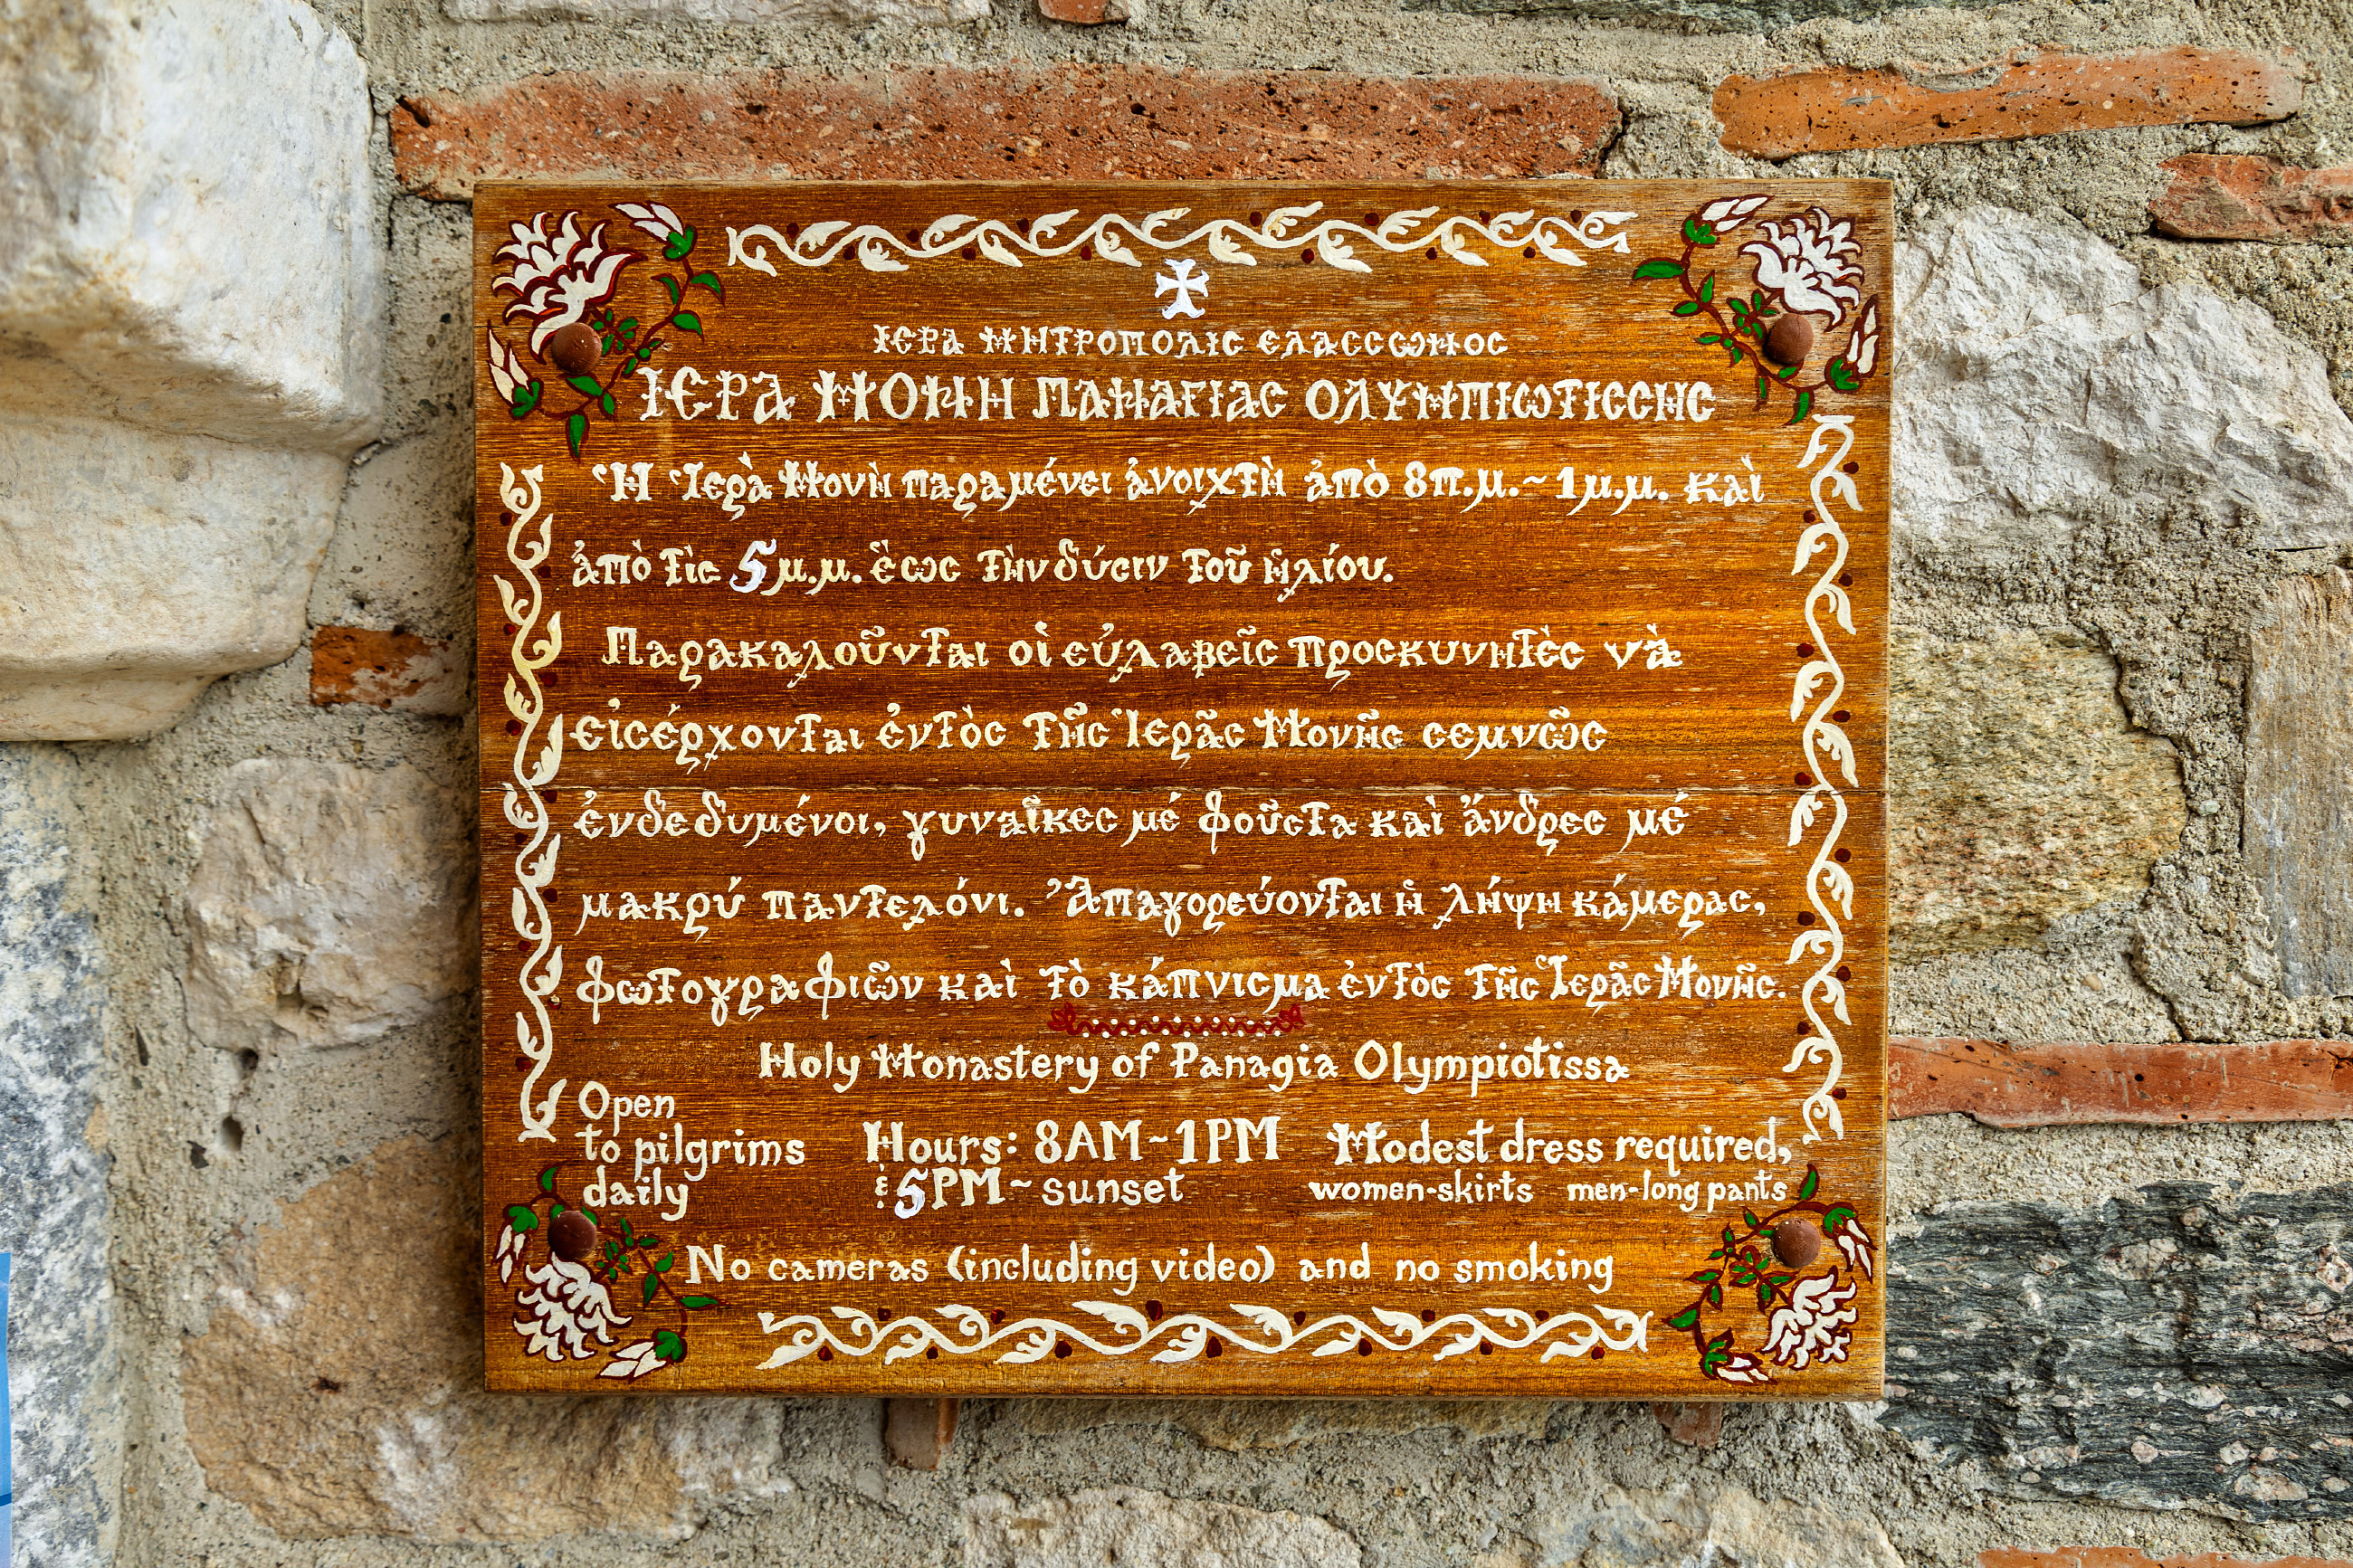 ΙΕΡΑ ΜΗΤΡΟΠΟΛΙΣ ΕΛΑΣΣΩΝΟΣ
ΙΕΡΑ ΜΟΝΗ ΠΑΝΑΓΙΑΣ ΟΛΥΜΠΙΩΤΙΣΣΗΣ
Ἡ Ἱερὰ Μονὴ παραμένει ἀνοιχτὴ ἀπὸ 8π.μ.~1μ.μ. καὶ
ἀπὸ τὶς 5μ.μ. ἓως τὴν δύσιν τοῦ ἡλίου.
Παρακαλοῦνται οἱ εὐλαβεῖς προσκυνητὲς νὰ
εἰσέρχονται ἐντὸς τῆς Ἱερᾶς Μονῆς σεμνῶς
ἐνδεδυμένοι, γυναῖκες μέ φοῦστα καὶ ἄνδρες μέ
μακρύ παντελόνι. Ἀπαγορεύονται ἡ λήψη κάμερας,
φωτογραφιῶν καὶ τὸ κάπνισμα ἐντὸς τῆς Ἱερᾶς Μονῆς.
Holy Monastery of Panagia Olympiotissa
Open
to pilgrims
daily
Hours: 8AM~1PM
& 5PM~sunset
Modest dress required,
women-skirts men-long pants
No cameras (including video) and no smoking